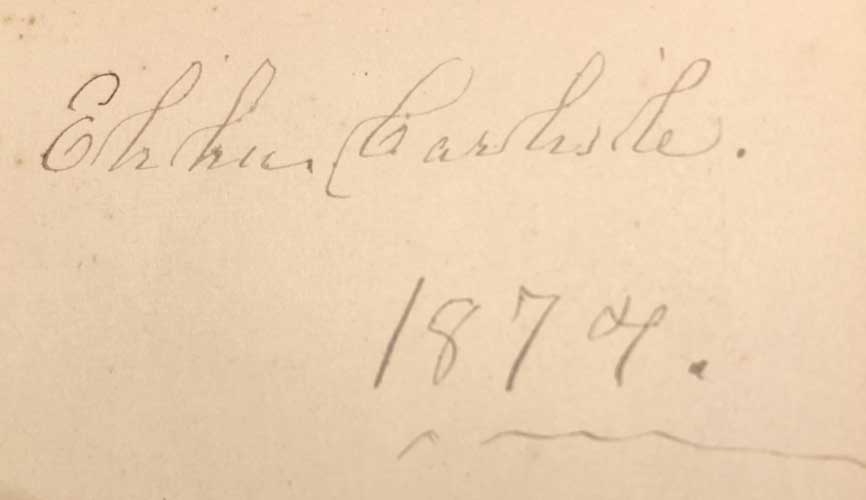 Elihu. Carlisle.
1874.